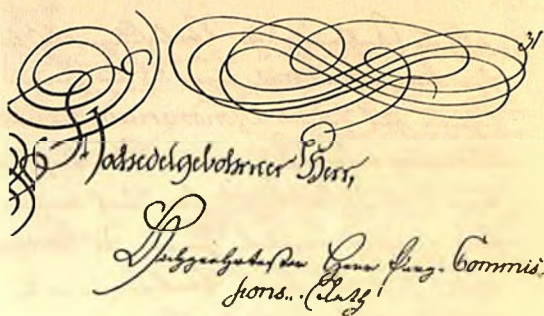 Hochedelgebohrner Herr,
Hochgeehrtester Herr Berg-Commis
sions.. Rath!